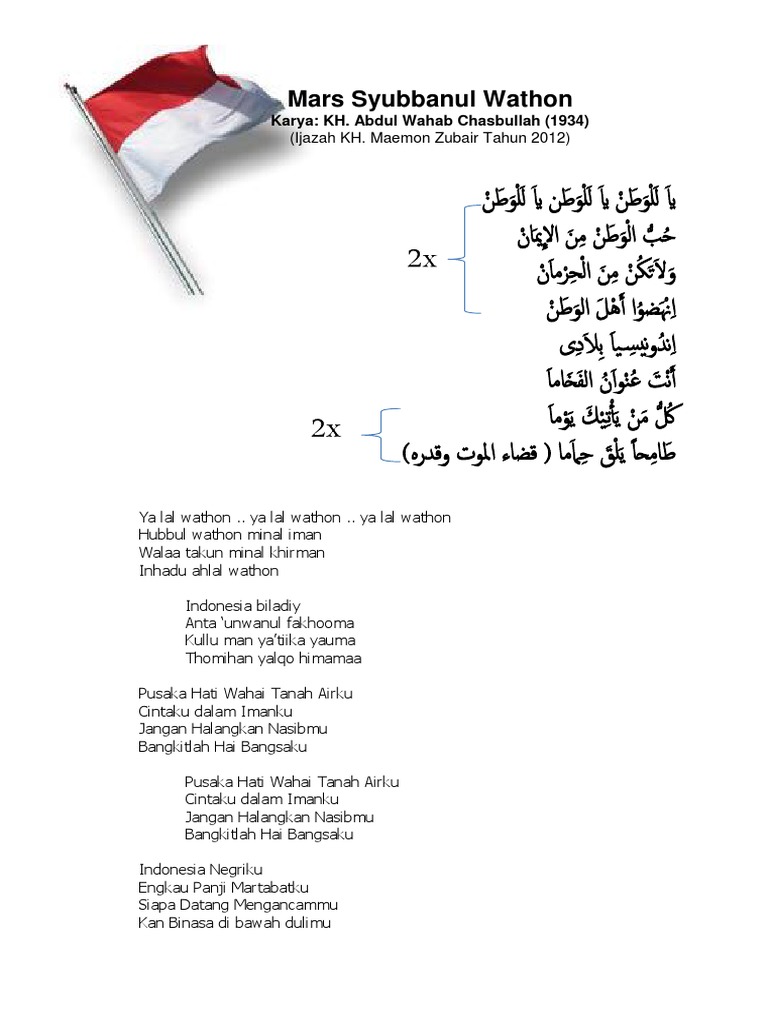 Mars Syubbanul Wathon
Karya: KH. Abdul Wahab Chasbullah (1934)
(Ijazah KH. Maemon Zubair Tahun 2012)
ياَ لَلْوَطَنْ ياَ لَلْوَطَن ياَ لَلْوَطَنْ
حُبُّ الْوَطَنْ مِنَ الإِيمَانْ
2x
وَلاَتَكُنْ مِنَ الْحِرْماَنْ
اِنْهَضوُا أَهْلَ الوَطَنْ
اِندُونيِسِياَ بِلاَدِى
أَنْتَ عُنْواَنُ الفَخَاماَ
كُلُّ مَنْ يَأْتِيْكَ يَوْماَ
2x
طَامِحاً يَلْقَ حِمَاما ( قضاء الموت وقدره)
Ya lal wathon .. ya lal wathon .. ya lal wathon
Hubbul wathon minal iman
Walaa takun minal khirman
Inhadu ahlal wathon
Indonesia biladiy
Anta ‘unwanul fakhooma
Kullu man ya’tiika yauma
Thomihan yalqo himamaa
Pusaka Hati Wahai Tanah Airku
Cintaku dalam Imanku
Jangan Halangkan Nasibmu
Bangkitlah Hai Bangsaku
Pusaka Hati Wahai Tanah Airku
Cintaku dalam Imanku
Jangan Halangkan Nasibmu
Bangkitlah Hai Bangsaku
Indonesia Negriku
Engkau Panji Martabatku
Siapa Datang Mengancammu
Kan Binasa di bawah dulimu